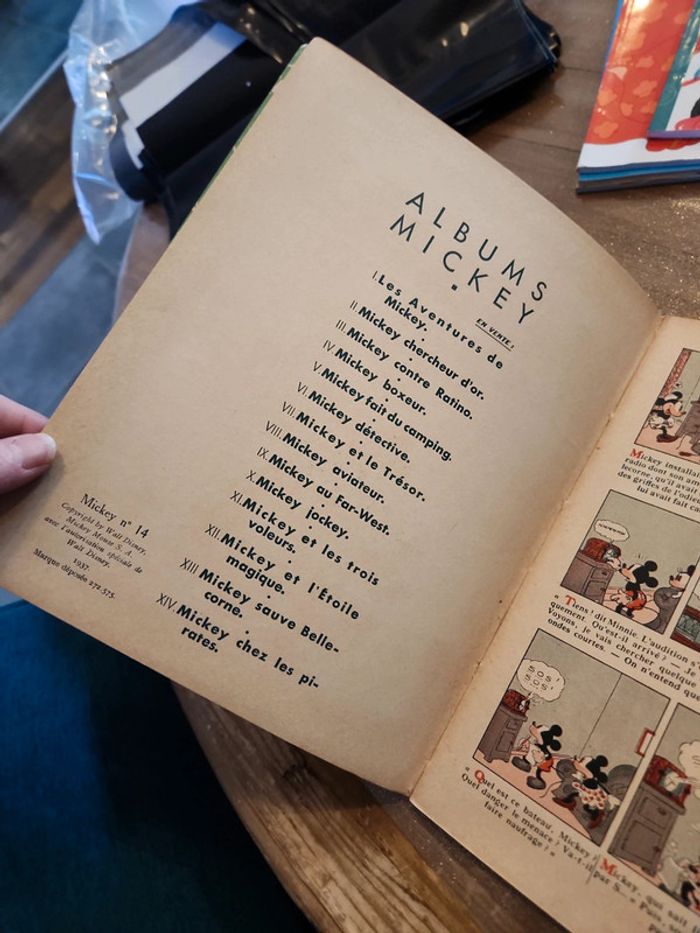 ALBUMS
MICKEY
EN VENTE :
I. Les Aventures de
Mickey.
II. Mickey chercheur d'or.
III. Mickey contre Ratino.
IV. Mickey boxeur.
V. Mickey fait du camping.
VI. Mickey détective.
VII. Mickey et le Trésor.
VIII. Mickey aviateur.
IX. Mickey au Far-West.
X. Mickey jockey.
XI. Mickey et les trois
voleurs.
XII. Mickey et l'Étoile
magique.
XIII Mickey sauve Belle-
corne.
XIV. Mickey chez les pi-
rates.
Mickey nº 14
Copyright by Walt Disney,
Mickey Mouse S. A.
avec l'autorisation spéciale de
Walt Disney.
1937.
Marque déposée 272.375.
Mickey installai
radio dont son am
lecorne, qu'il avai
des griffes de l'odie
lui avait fait ca
« Tiens! dit Minnie. L'audition s'
quement. Qu'est-il arrivé ? — Je
Voyons, je vais chercher quelque
ondes courtes. — On n'entend que
SOS!
SOS!
« Quel est ce bateau, Mickey ?
Quel danger le menace ? Va-t-il
faire naufrage ? »
Mickey, qui sait
par S... « Puis, so